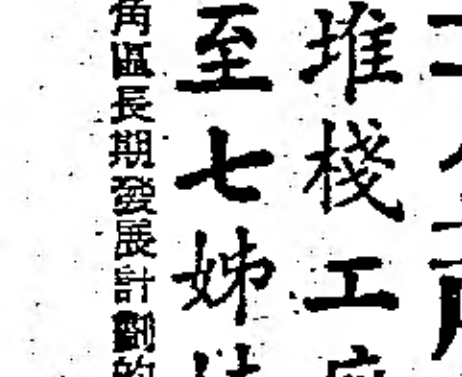 堆棧工
至七姊
角區長期發展計劃的